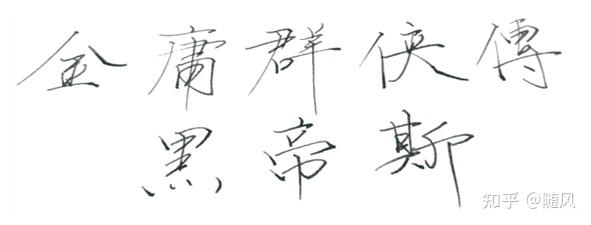 金庸群侠傳
黑帝斯
知乎 @随风